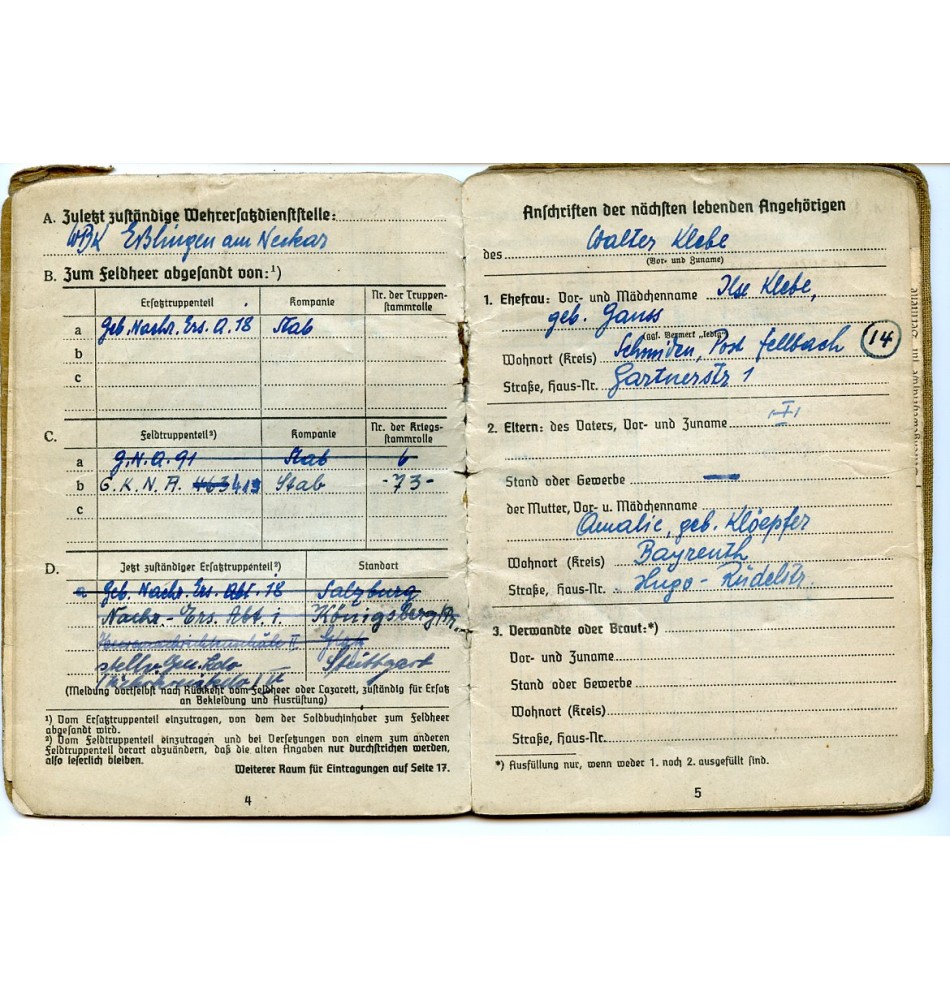 A. Zuletzt zuständige Wehrersatzdienststelle:
WBK Eßlingen am Neckar
B. Zum Feldheer abgesandt von:¹)
Ersatztruppenteil Kompanie Nr. der Truppen-
stammrolle
a Geb. Nachr. Ers. A. 18 Stab
b
c
C. Feldtruppenteil²) Kompanie Nr. der Kriegs-
stammrolle
a G.N.A. 91 Stab 6
b G.K.N.A. 463 419 Stab -73-
c
D. Jetzt zuständiger Ersatztruppenteil²) Standort
a Geb. Nachr. Ers. Abt. 18 Salzburg
Nachr.-Ers. Abt. 1 Königsberg/Pr.
stellv. Gen. Kdo Stuttgart
(Meldung dortselbst nach Rückkehr vom Feldheer oder Lazarett, zuständig für Ersatz
an Bekleidung und Ausrüstung)
¹) Vom Ersatztruppenteil einzutragen, von dem der Soldbuchinhaber zum Feldheer
abgesandt wird.
²) Vom Feldtruppenteil einzutragen und bei Versetzungen von einem zum anderen
Feldtruppenteil derart abzuändern, daß die alten Angaben nur durchstrichen werden,
also leserlich bleiben.
Weiterer Raum für Eintragungen auf Seite 17.
4
Anschriften der nächsten lebenden Angehörigen
des Walter Klebe
(Vor- und Zuname)
1. Ehefrau: Vor- und Mädchenname Ilse Klebe,
geb. Gauss
(ggf. Vermerk „ledig")
Wohnort (Kreis) Schmiden, Post Fellbach 14
Straße, Haus-Nr. Gartnerstr 1
2. Eltern: des Vaters, Vor- und Zuname
Stand oder Gewerbe —
der Mutter, Vor- u. Mädchenname
Amalie, geb. Klöepfer
Wohnort (Kreis) Bayreuth
Straße, Haus-Nr. Hugo-Rüdelstr.
3. Verwandte oder Braut:*)
Vor- und Zuname
Stand oder Gewerbe
Wohnort (Kreis)
Straße, Haus-Nr.
*) Ausfüllung nur, wenn weder 1. noch 2. ausgefüllt sind.
5